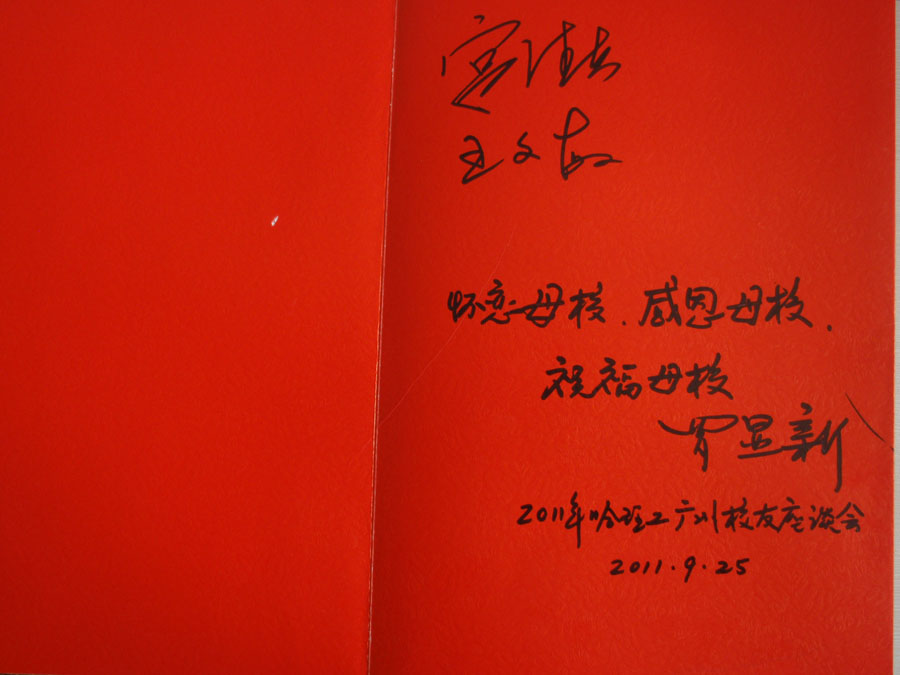 王文
怀恋母校、感恩母校、
祝福母校
罗显新
2011年哈理工广州校友座谈会
2011.9.25